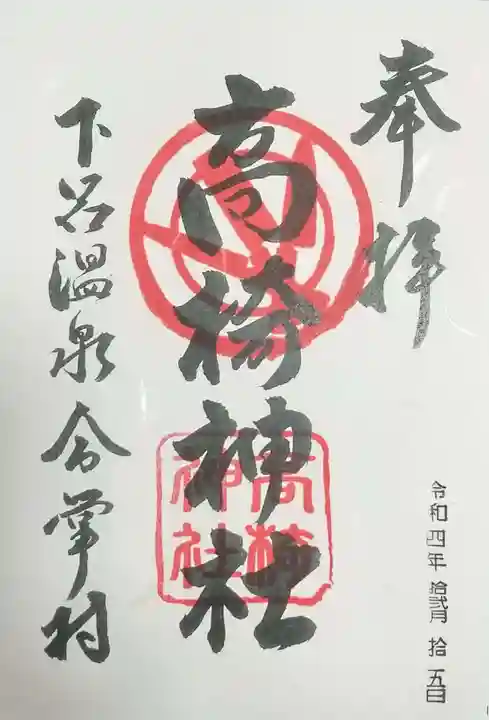 奉拝
令和四年 拾弐月 拾五日
高椅神社
高椅神社
下呂温泉合掌村